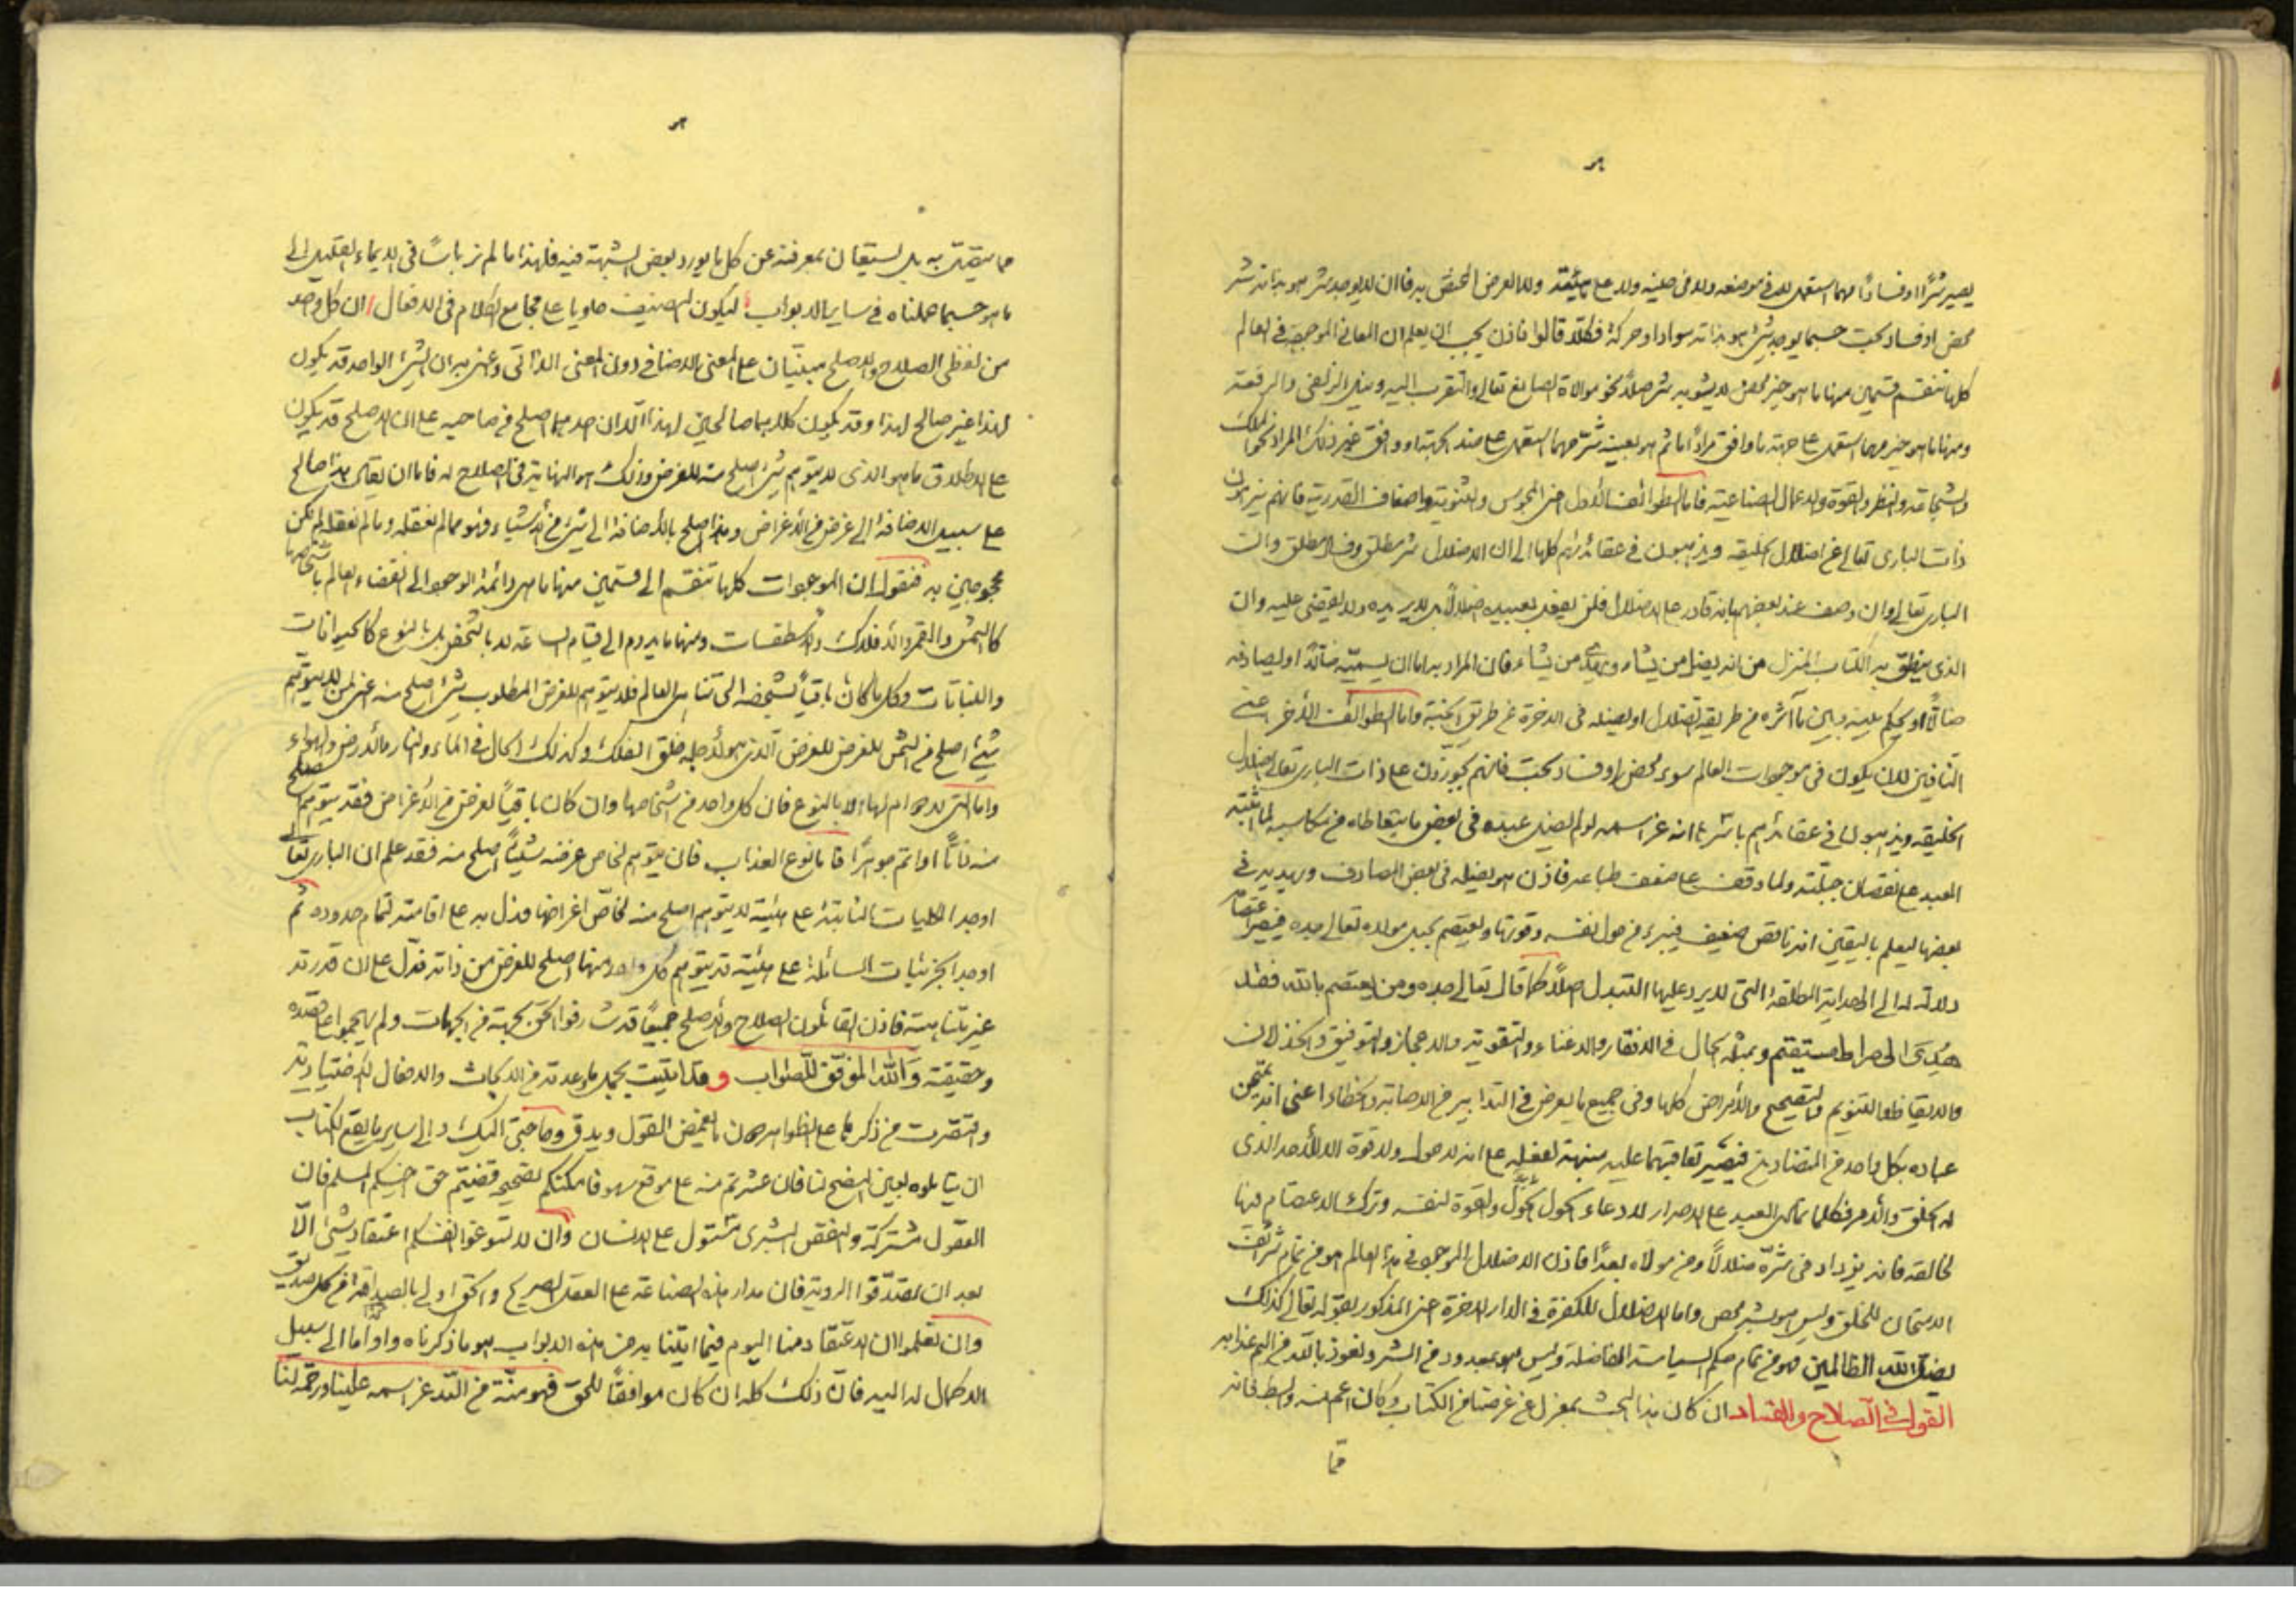 يصير شرًّا او فسادًا مهما استعمل لا في موضعه ولا في حينه ولا على هيئته ولا لغرض المختص به فاما ان لا يوجد شر هو بذاته شر
محض او فساد بحت حسبما يوجد شيء هو بذاته سواد او حركة فكلا قالوا فاذن يجب ان يعلم ان المعاني الموجودة في العالم
كلها تنقسم قسمين منها ما هو خير محض لا يشوبه شر اصلاً نحو موالاة الصانع تعالى والتقرب اليه ونيل الزلفى والرفعة
ومنها ما هو خير مهما استعمل على جهة ما وافق مرادًا ما ثم هو بعينه شر مهما استعمل على ضد الجهة او وافق غير ذلك المراد نحو الملك
والشجاعة والنظر والقوة والاعمال الصناعية فاما الطوائف الأول اعني المجوس والثنوية واصناف القدرية فانهم ينزهون
ذات الباري تعالى عن اضلال الخليقة ويذهبون في عقائدهم كلها الى ان الاضلال شر مطلق وفساد مطلق وان
الباري تعالى وان وصف عند بعضهم بانه قادر على الاضلال فلن يفعل بعبيده ضلالاً بل لا يريده ولا يقضي عليه وان
الذي ينطق به الكتاب المنزل من انه يضل من يشاء ويهدي من يشاء فان المراد به اما ان يسميه ضالًّا او يصادفه
ضالًّا او يحكم عليه وبين ما آثره من طريقة الضلال او يضله في الآخرة عن طريق الجنة واما الطوائف الأخر اعني
النافين لان يكون في موجودات العالم سوء محض او فساد بحت فانهم يجوزون على ذات الباري تعالى اضلال
الخليقة ويذهبون في عقائدهم باشرها انه عز اسمه لو لم يضل عبده في بعض ما يتعاطاه من مكاسبه لما تنبه
العبد على نقصان جبلته ولما وقف على ضعف طباعه فاذن هو يضله في بعض المصادف ويهديه في
بعضها ليعلم باليقين انه ناقص ضعيف فيبرء من حول نفسه وقوتها ويعتصم بحبل مولاه تعالى جده فيصير اعتصامه
دلالة له الى الهداية المطلقة التي لا يرد عليها التبدل اصلاً كما قال تعالى جده ومن يعتصم بالله فقد
هُدِيَ الى صراط مستقيم وبمثله الحال في الافقار والاغناء والتقوية والاعجاز والتوفيق والخذلان
والايقاظ والتنويم والتصحيح والأمراض كلها وفي جميع ما يعرض في التدابير من الاصابة والخطاء اعني انه يمتحن
عباده بكل واحد من المتضادين فيصير تعاقبهما عليه منبهة لعقله على انه لا حول ولا قوة الا للأحد الذي
له الخلق والأمر فكلما تمادى العبد على الاصرار لادعاء الحول والقوة لنفسه وترك الاعتصام فيها
لخالقه فانه يزداد في شره ضلالاً ومن مولاه بعدًا فاذن الاضلال الموجود في هذا العالم هو من تمام شرائف
الامتحان للخلق وليس هو بشر محض واما الاضلال للكفرة في الدار الاخرة اعني المذكور بقوله تعالى كذلك
يضل الله الظالمين فهو من تمام حكم السياسة الفاضلة وليس هو بمعدود من الشر ونعوذ بالله من اليم عذابه
القول في الصلاح والفساد ان كان هذا البحث بمعزل عن غرضنا من الكتاب وكان اعم منه وابسط فانه
مما
مما يتعلق به بل يستعان بمعرفته عن كل ما يورد بعض الشبهة فيه فلهذا ما لم نر باسًا في الايماء القليل الى
ما هو حسبما عملناه في ساير الابواب ليكون التصنيف حاويا على مجامع الكلام في الافعال ان كل واحد
من لفظي الصلاح والاصلح مبنيتان على المعنى الاضافي دون المعنى الذاتي واعني به ان الشيء الواحد قد يكون
لهذا غير صالح لهذا وقد يكون كلاهما صالحين لهذا الا ان احدهما اصلح من صاحبه على ان الاصلح قد يكون
على الاطلاق ما هو الذي لا يتوهم شيء اصلح منه للغرض وذلك هو النهاية في الصلاح له فاما ان يقال هذا صالح
على سبيل الاضافة الى غرض من الأغراض وهذا اصلح بالاضافة الى شيء من الأشياء فهو مما لم نعقله وما لم نعقله لم نكن
محجوجين به فنقول ان الموجودات كلها تنقسم الى قسمين منها ما هي دائمة الوجود الى انقضاء العالم باشخاصها
كالشمس والقمر والأفلاك والأسطقسات ومنها ما يدوم الى قيام الساعة لا بالشخص بل بالنوع كالحيوانات
والنباتات وكل ما كان باقيًا بشخصه الى تناهي العالم فلا يتوهم للغرض المطلوب شيء اصلح منه اعني لن يتوهم
شيء اصلح من الشمس للغرض الذي هو لأجله خلق الفلك وكذلك الحال في الماء والنار والأرض والهواء
واما التي لا دوام لها الا بالنوع فان كل واحد من اشخاصها وان كان باقيًا لغرض من الأغراض فقد يتوهم اصلح
منه ذاتًا او اتم جوهرًا فاما نوع العذاب فان يتوهم لخاص غرضه شيئًا اصلح منه فقد علم ان الباري تعالى
اوجد الكليات الثابتة على هيئة لا يتوهم اصلح منه لخاص اغراضها فدل به على اقامته لتمام حدوده ثم
اوجد الجزئيات السائلة على هيئة قد يتوهم كل واحد منها اصلح للغرض من ذاته فدل على ان قدرته
غير متناهية فاذن القائلون الصلاح والأصلح جميعًا قد شارفوا الحق بجهة من الجهات ولم يهجموا على قصده
وحقيقته وَاللّه الموفّق للصّواب و قد اتيت بحمد ما وعدته من الابحاث والافعال الاختيارية
واقتصرت من ذكرها على الظواهر دون ما يغمض القول ويدق وصاحبي اليك والى ساير ما يقع الكتاب
ان يتاملوه بعين النصح لنا فان عثرتم منه على موقع سهو فامكنكم تصحيحه قضيتم حق اخيكم المسلم فان
العقول مشتركة والنقص البشري مشتول على الانسان وان لا تسوغوا انفسكم اعتقاد شيء الّا
بعد ان تصدقوا الروية فان مدار هذه الصناعة على العقل الصريح والحق اولى بالصداقة من كل صديق
وان تعلموا ان الاعتقاد منا اليوم فيما اتينا به من هذه الابواب هو ما ذكرناه واوأما الى سبيل
الاكمال له اليه فان ذلك كله ان كان موافقًا للحق فهو منّة من اللّه عز اسمه علينا ورحمة لنا